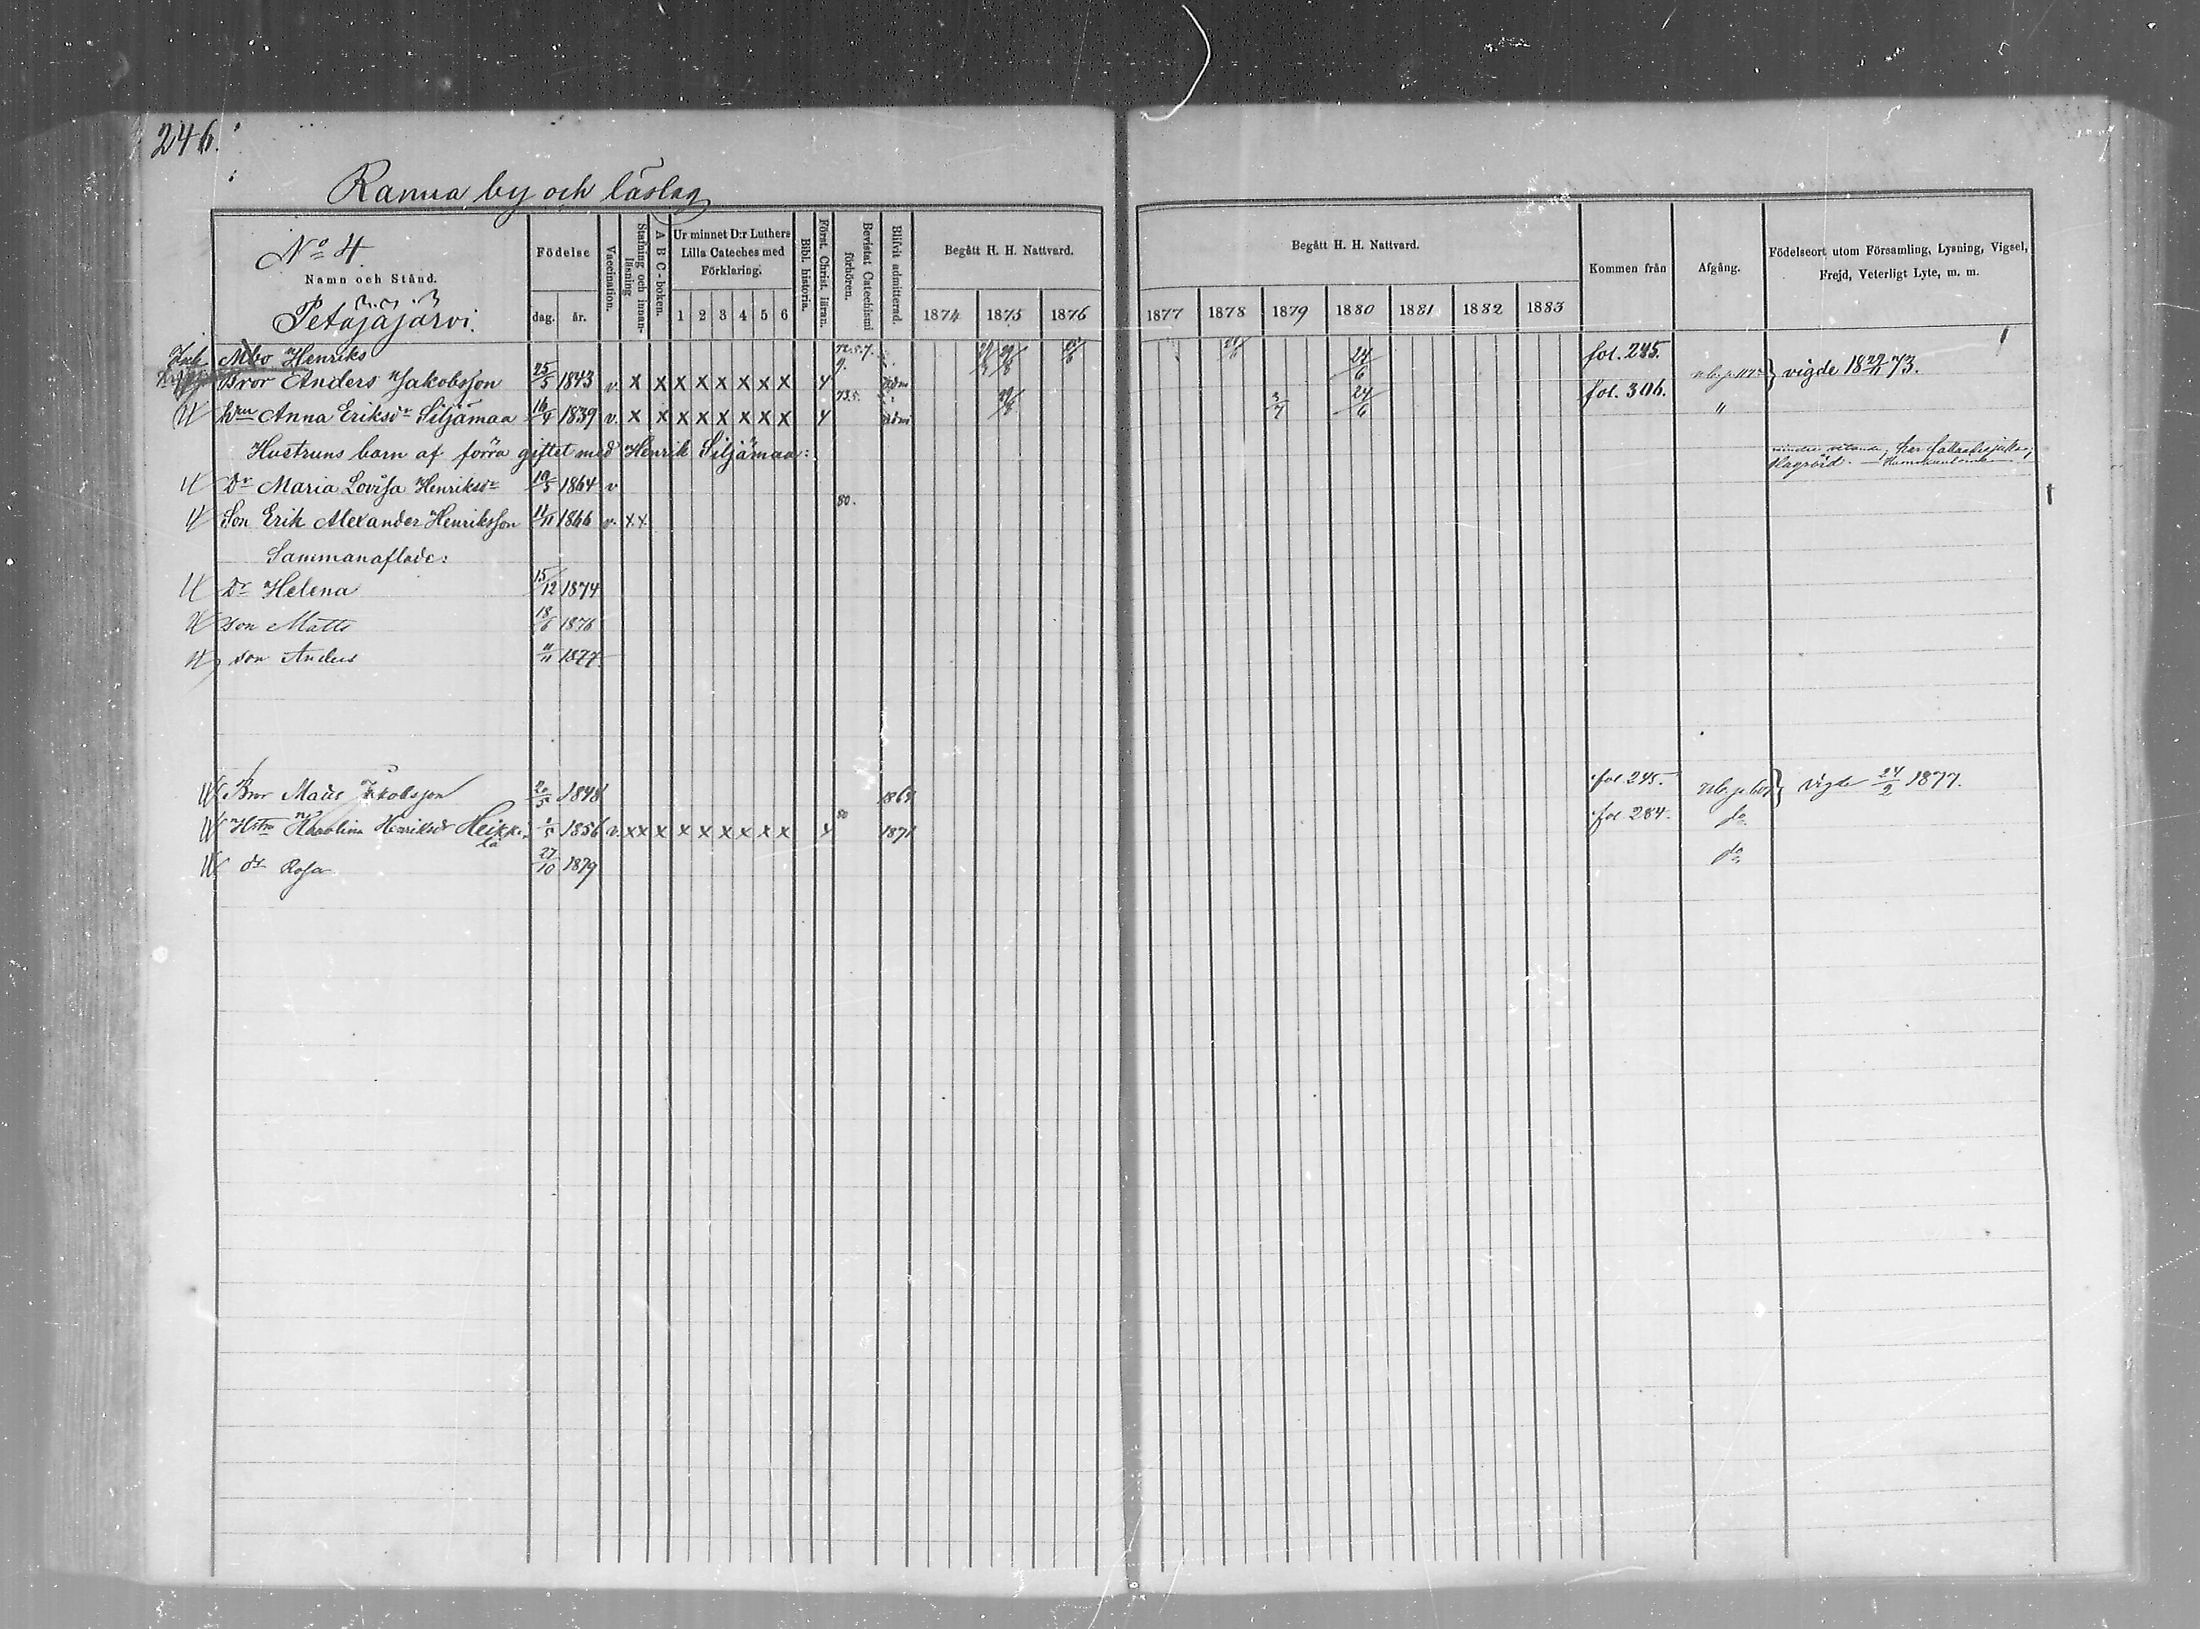 246.
Ranua by och läslag
No 4
Namn och Stånd.
Petäjäjärvi.
Födelse
dag. år.
Vaccination.
Stafning och innan-läsning
A B C-boken.
Ur minnet D:r Luthers Lilla Cateches med Förklaring.
1 2 3 4 5 6
Bibl. historia.
Först. Christ. läran.
Bevistat Catechismi förhören.
Blifvit admitterad.
Begått H. H. Nattvard.
1874 1875 1876
Begått H. H. Nattvard.
1877 1878 1879 1880 1881 1882 1883
Kommen från
Afgång.
Födelseort utom Församling, Lysning, Vigsel, Frejd, Veterligt Lyte, m. m.
Henriks
Bror Anders Jakobsson 25/5 1843 v. x x x x x x x x 4 24/6 fol. 245. vigde 18 29/11 73.
hru Anna Eriksdr Siljämaa 16/4 1839 v. x x x x x x x x 4 3/7 24/6 fol. 306. "
Hustruns barn af förra giftet med Henrik Siljämaa:
Dr Maria Lovisa Henriksdr 10/5 1864 v
Son Erik Alexander Henriksson 11/11 1866 v. x x 80.
Sammanaflade:
Dr Helena 15/12 1874
Son Matts 18/6 1876
Son Anders 11/11 1877
Bror Mats Jakobsson 20/5 1848 1864 fol 245. vigde 24/2 1877.
Hstru Karolina Henriksdr Heikkilä 1/5 1856 v. x x x x x x x x x 4 80 1871 fol 284. do
dr Rosa 27/10 1879 do